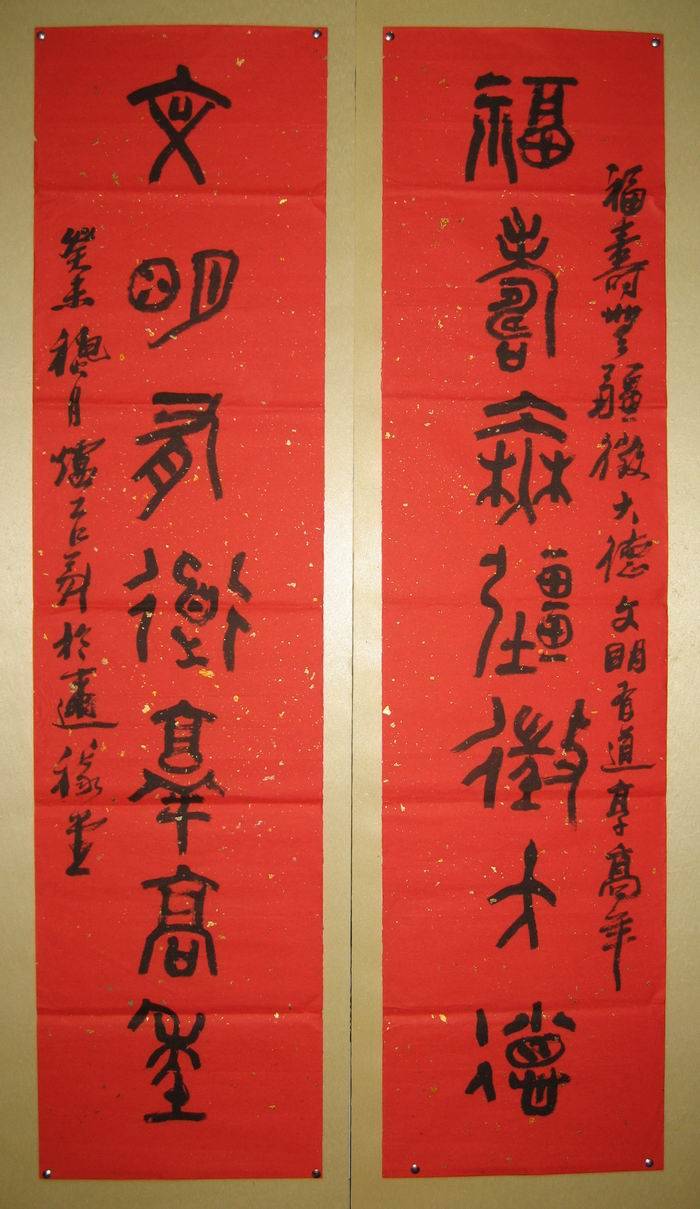 福壽無疆徵大德文明有道享高年
福壽無疆徵大德
文明有道享高年
癸未穐月於稼堂